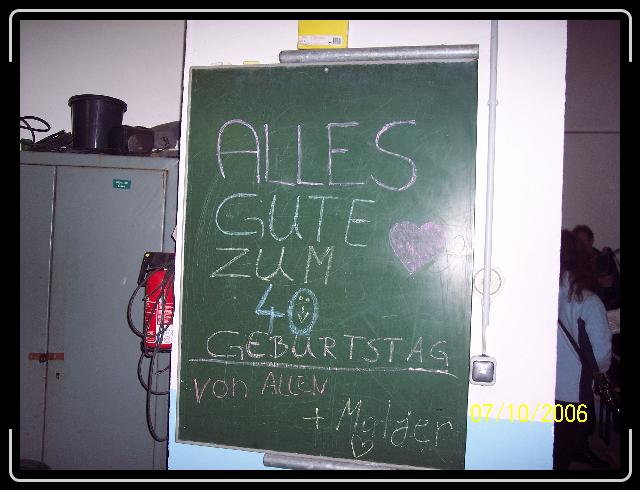 ALLES
GUTE
ZUM
40
GEBURTSTAG
von ALLEN
+
07/10/2006